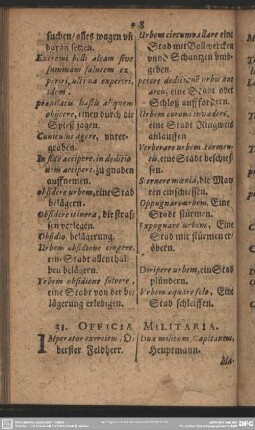 8
suchen/ alles wagen vñ
daran setzen.
Extremi belli aleam sive
summam salutem ex
periri, ultima experiri,
idem.
præpilatis hastis aliquem
objicere, einen durch die
Spieß jagen.
Cuniculos agere, vnter-
graben.
In fidē accipere, in deditio
nem accipere, zu gnaden
auffnemen.
obsidere urbem, eine Stad
belägern.
Obsidere itinera, die stras-
sen verlegen.
Obsidio, belägerung.
Urbem obsidione cingere,
ein Stadt allenthal-
ben belägern.
Urbem obsidione solvere,
eine Stadt von der be-
lägerung erledigen.
Urbem circumvallare eine
Stad mit Bollwercken
vnd Schantzen vmb-
geben.
petere deditionē urbis aut
arcis, eine Stadt oder
Schloß auffordern.
Urbem corona invadere,
eine Stadt Ringweis
anlauffen
Verberare urbem tormen-
tis, eine Stadt beschies-
sen.
Sternere mœnia, die Mau-
ren einschiessen.
Oppugnare urbem, Eine
Stadt stürmen.
Expugnare urbem, Eine
Stad mit stürmen er-
öbern.
Diripere urbem, ein Stad
plündern.
Urbem æquare solo, Eine
Stad schleiffen.
31. OFFICIA MILITARIA.
IMperator exercitus, O-
berster Feldherr.
Dux militum, Capitaneus,
Heuptmann.